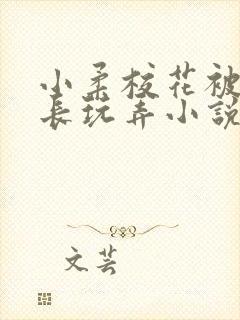 小柔校花被
长玩弄小说
文芸